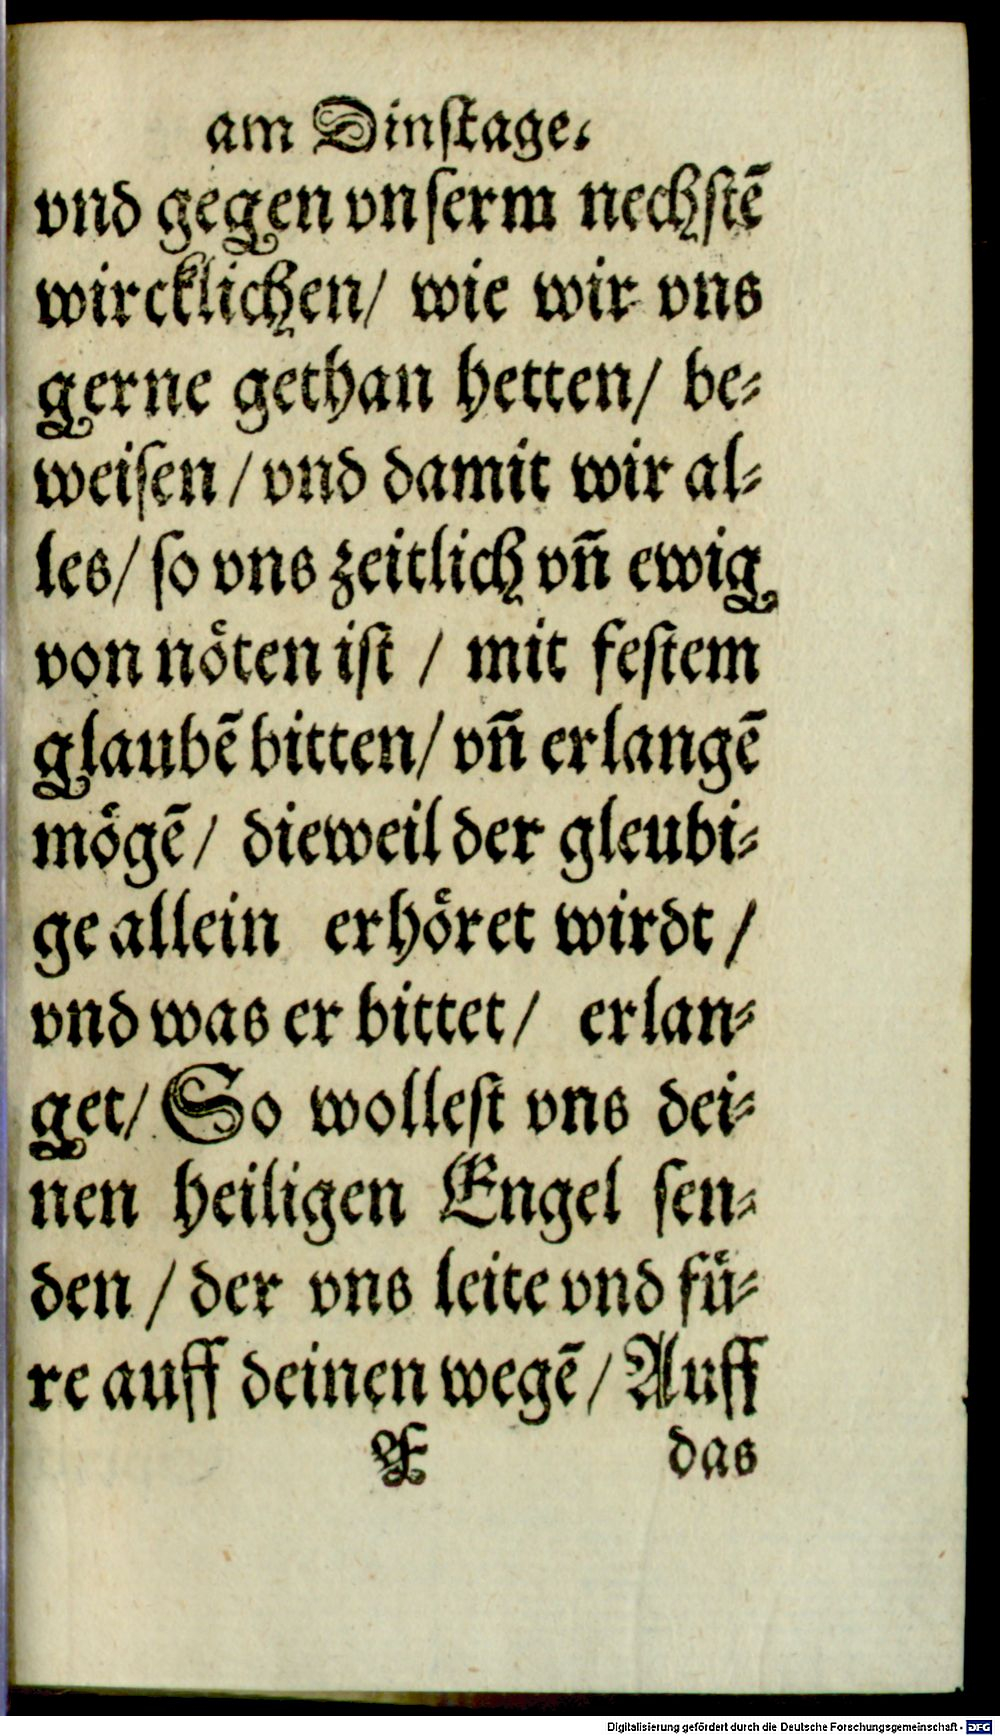 am Dinſtage.
vnd gegen vnſerm nechſtē
wircklichen/ wie wir vns
gerne gethan hetten/ be⸗
weiſen / vnd damit wir al⸗
les/ ſo vns zeitlich vn̄ ewig
von nöten iſt / mit feſtem
glaubē bitten/ vn̄ erlangē
mögē/ dieweil der gleubi⸗
ge allein erhöret wirdt /
vnd was er bittet/ erlan⸗
get/ So wolleſt vns dei⸗
nen heiligen Engel ſen⸗
den / der vns leite vnd fü⸗
re auff deinen wegē / Auff
X das
Digitalisierung gefördert durch die Deutsche Forschungsgemeinschaft - DFG